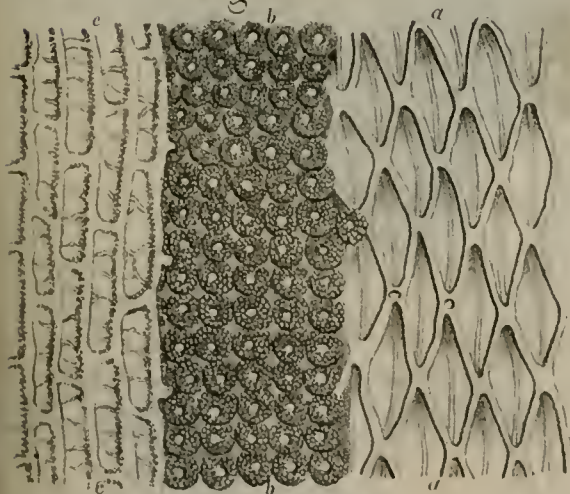 c b a
c b a